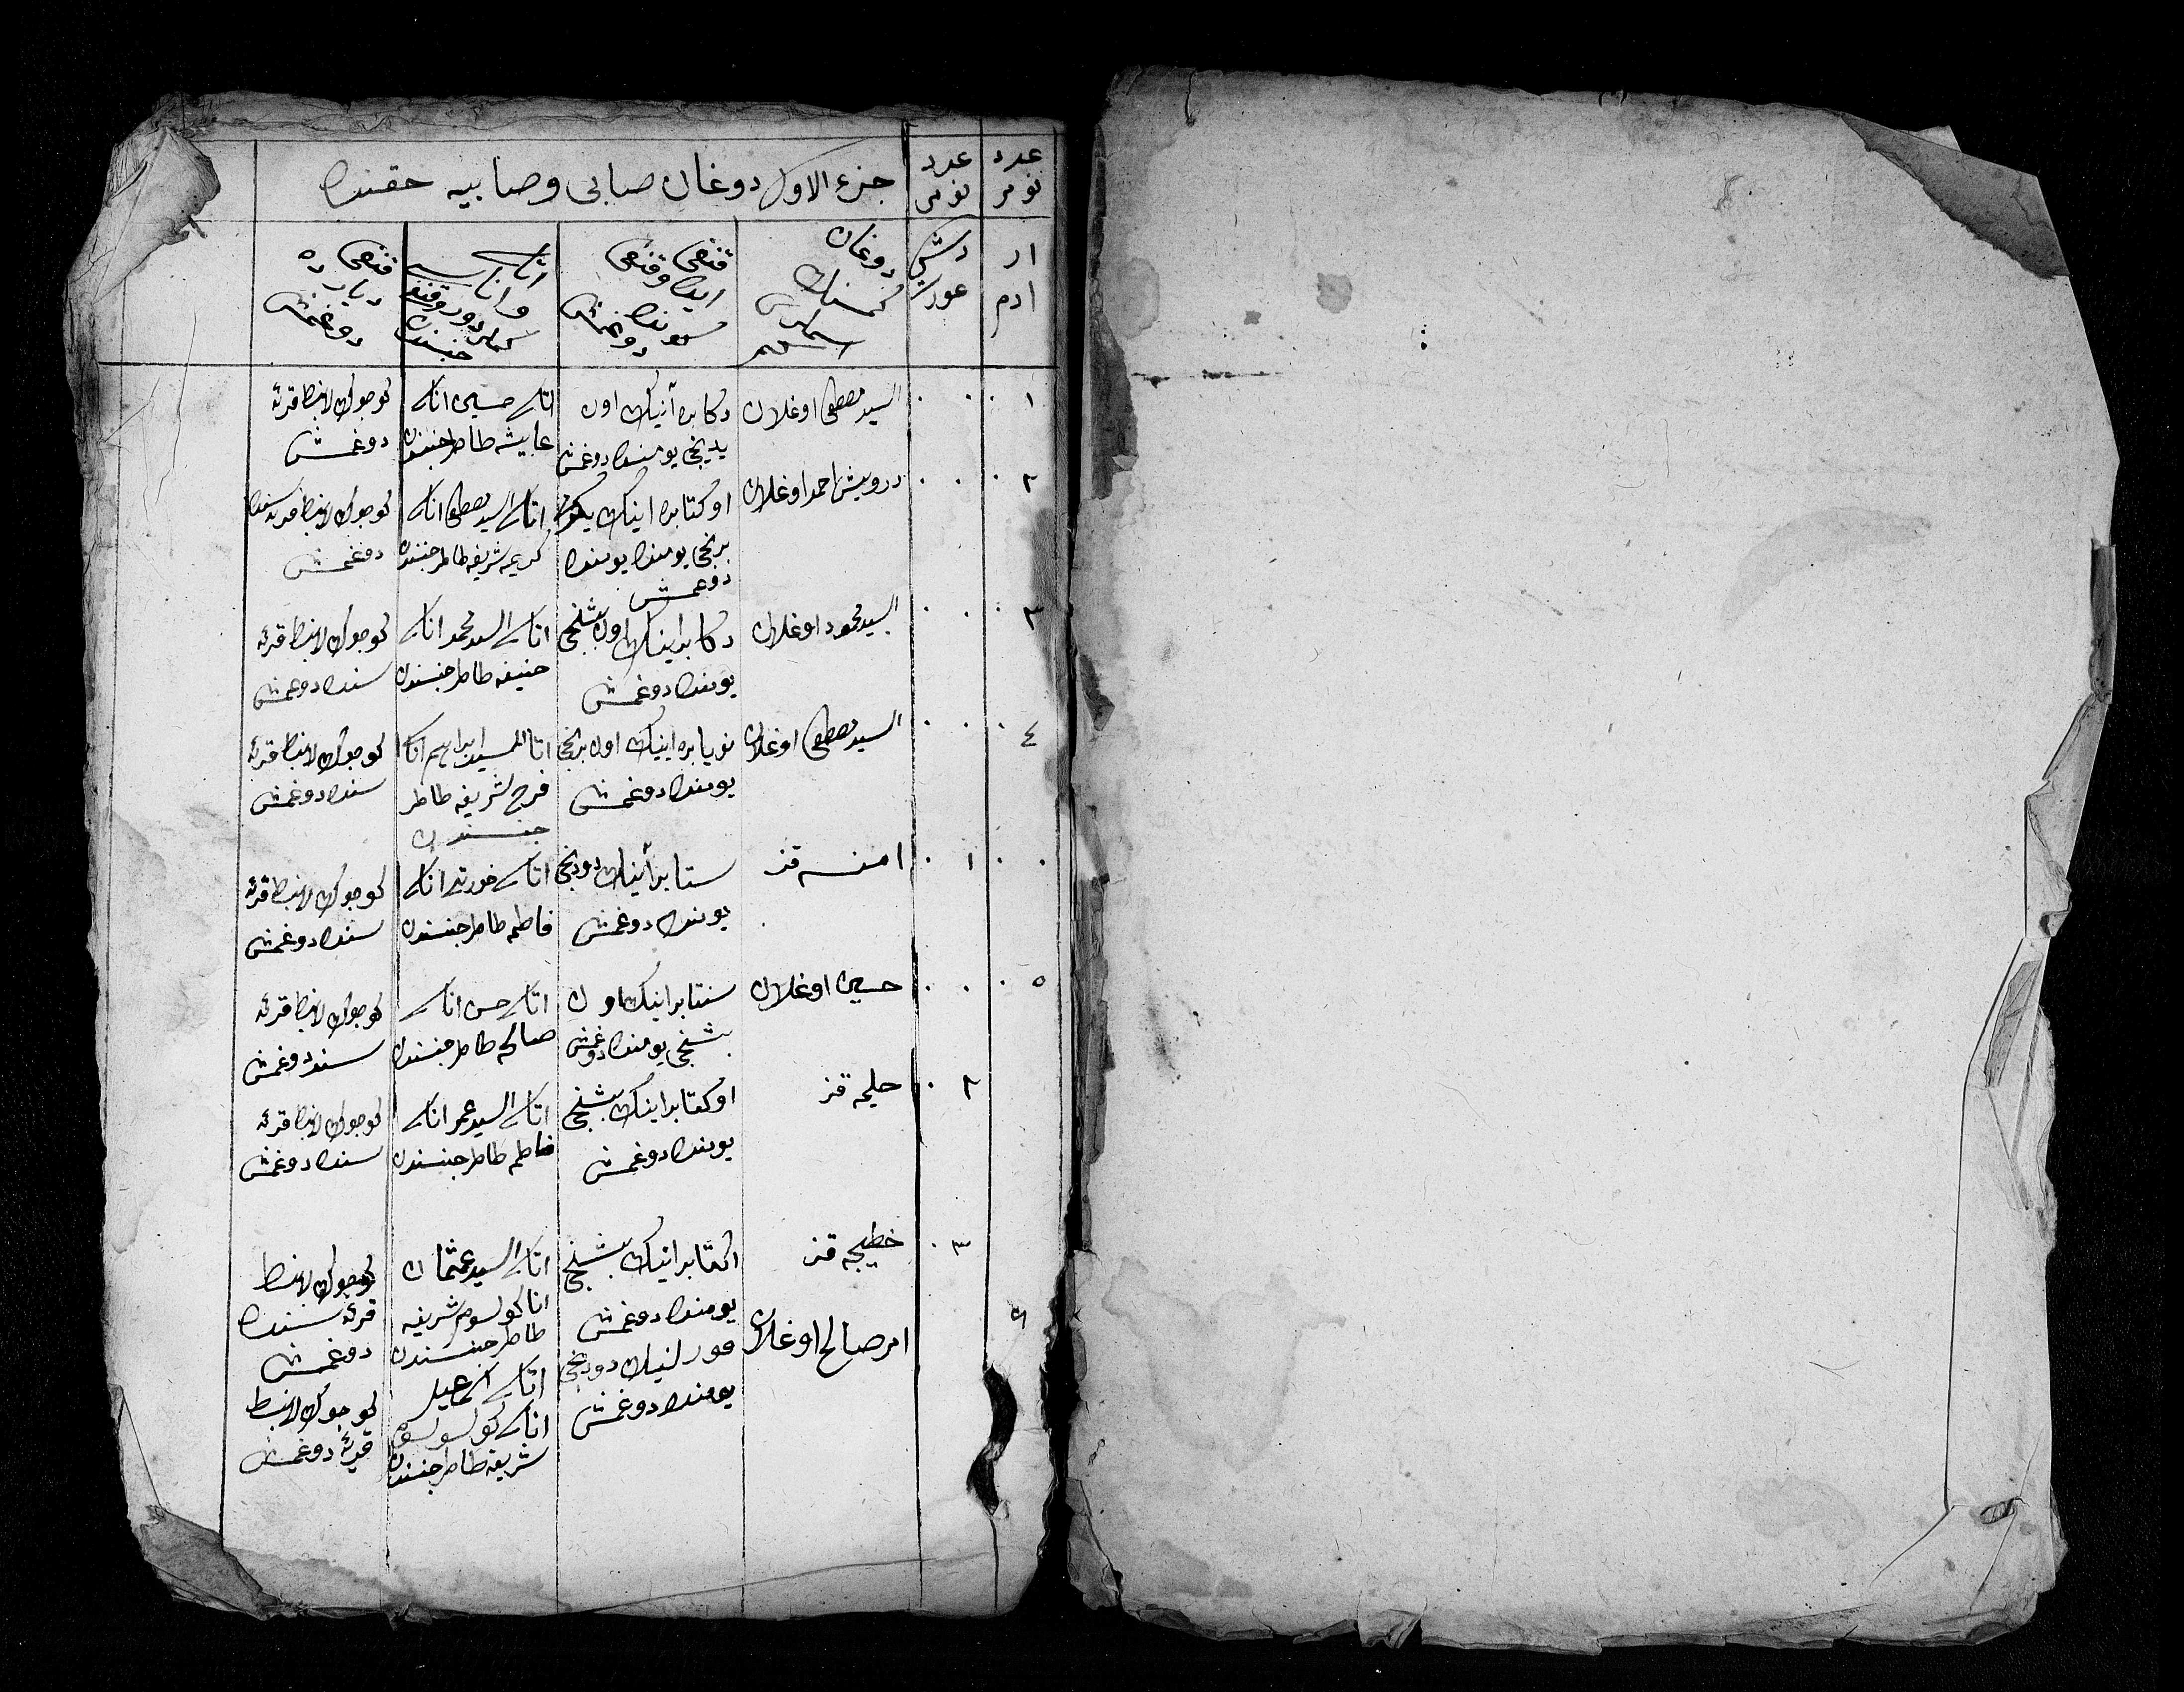 عدد
نومر
عدد
نومر
جزء الاول دوغان صابی وصابیه حقنده
ار
ادم
دشی
عورت
دوغان
كمسنك
قنغی
ایده وقنغی
دوغمش
اتاسی
واناسی
قنغی
دیارده
دوغمش
١
السید مصطفی اوغلان
دكابره آینك اون
یدینجی یومنده دوغمش
اتاسی حسین اناسی
عایشه طاطر جنسندن
كوجوك لانبط قریه
دوغمش
٢
درویش احمد اوغلان
اوكتابره اینك یكرمی
برنجی یومنده یومنده
دوغمش
اتاسی السید مصطفی اناسی
كریمه شریفه طاطر جنسندن
كوجوك لانبط قریه سنده
دوغمش
٣
السید محمود اوغلان
دكابر اینك اون بشنجی
یومنده دوغمش
اتاسی السید محمد اناسی
حنیفه طاطر جنسندن
كوجوك لانبط قریه
سنده دوغمش
٤
السید مصطفی اوغلان
نویابره اینك اون برنجی
یومنده دوغمش
اتاسی السید ابراهیم اناسی
فرح شریفه طاطر
جنسندن
كوجوك لانبط قریه
سنده دوغمش
١
امنه قز
ستابر آینك دوردنجی
یومنده دوغمش
اتاسی اناسی
فاطمه طاطر جنسندن
كوجوك لانبط قریه
سنده دوغمش
٥
حسین اوغلان
سنتابر اینك اون
بشنجی یومنده دوغمش
اتاسی حسن اناسی
صالحه طاطر جنسندن
كوجوك لانبط قریه
سنده دوغمش
٢
حلیمه قز
اوكتابر اینك بشنجی
یومنده دوغمش
اتاسی السید عمر اناسی
فاطمه طاطر جنسندن
كوجوك لانبط قریه
سنده دوغمش
٣
خطیجه قز
اكتابر اینك بشنجی
یومنده دوغمش
اتاسی السید عثمان
انا كولسوم شریفه
طاطر جنسندن
كوجوك لانبط
قریه سنده
دوغمش
٦
امر صالح اوغلان
دوردنجی
یومنده دوغمش
اتاسی اسماعیل
اناسی كولسوم
شریفه طاطر جنسندن
كوجوك لانبط
قریه دوغمش